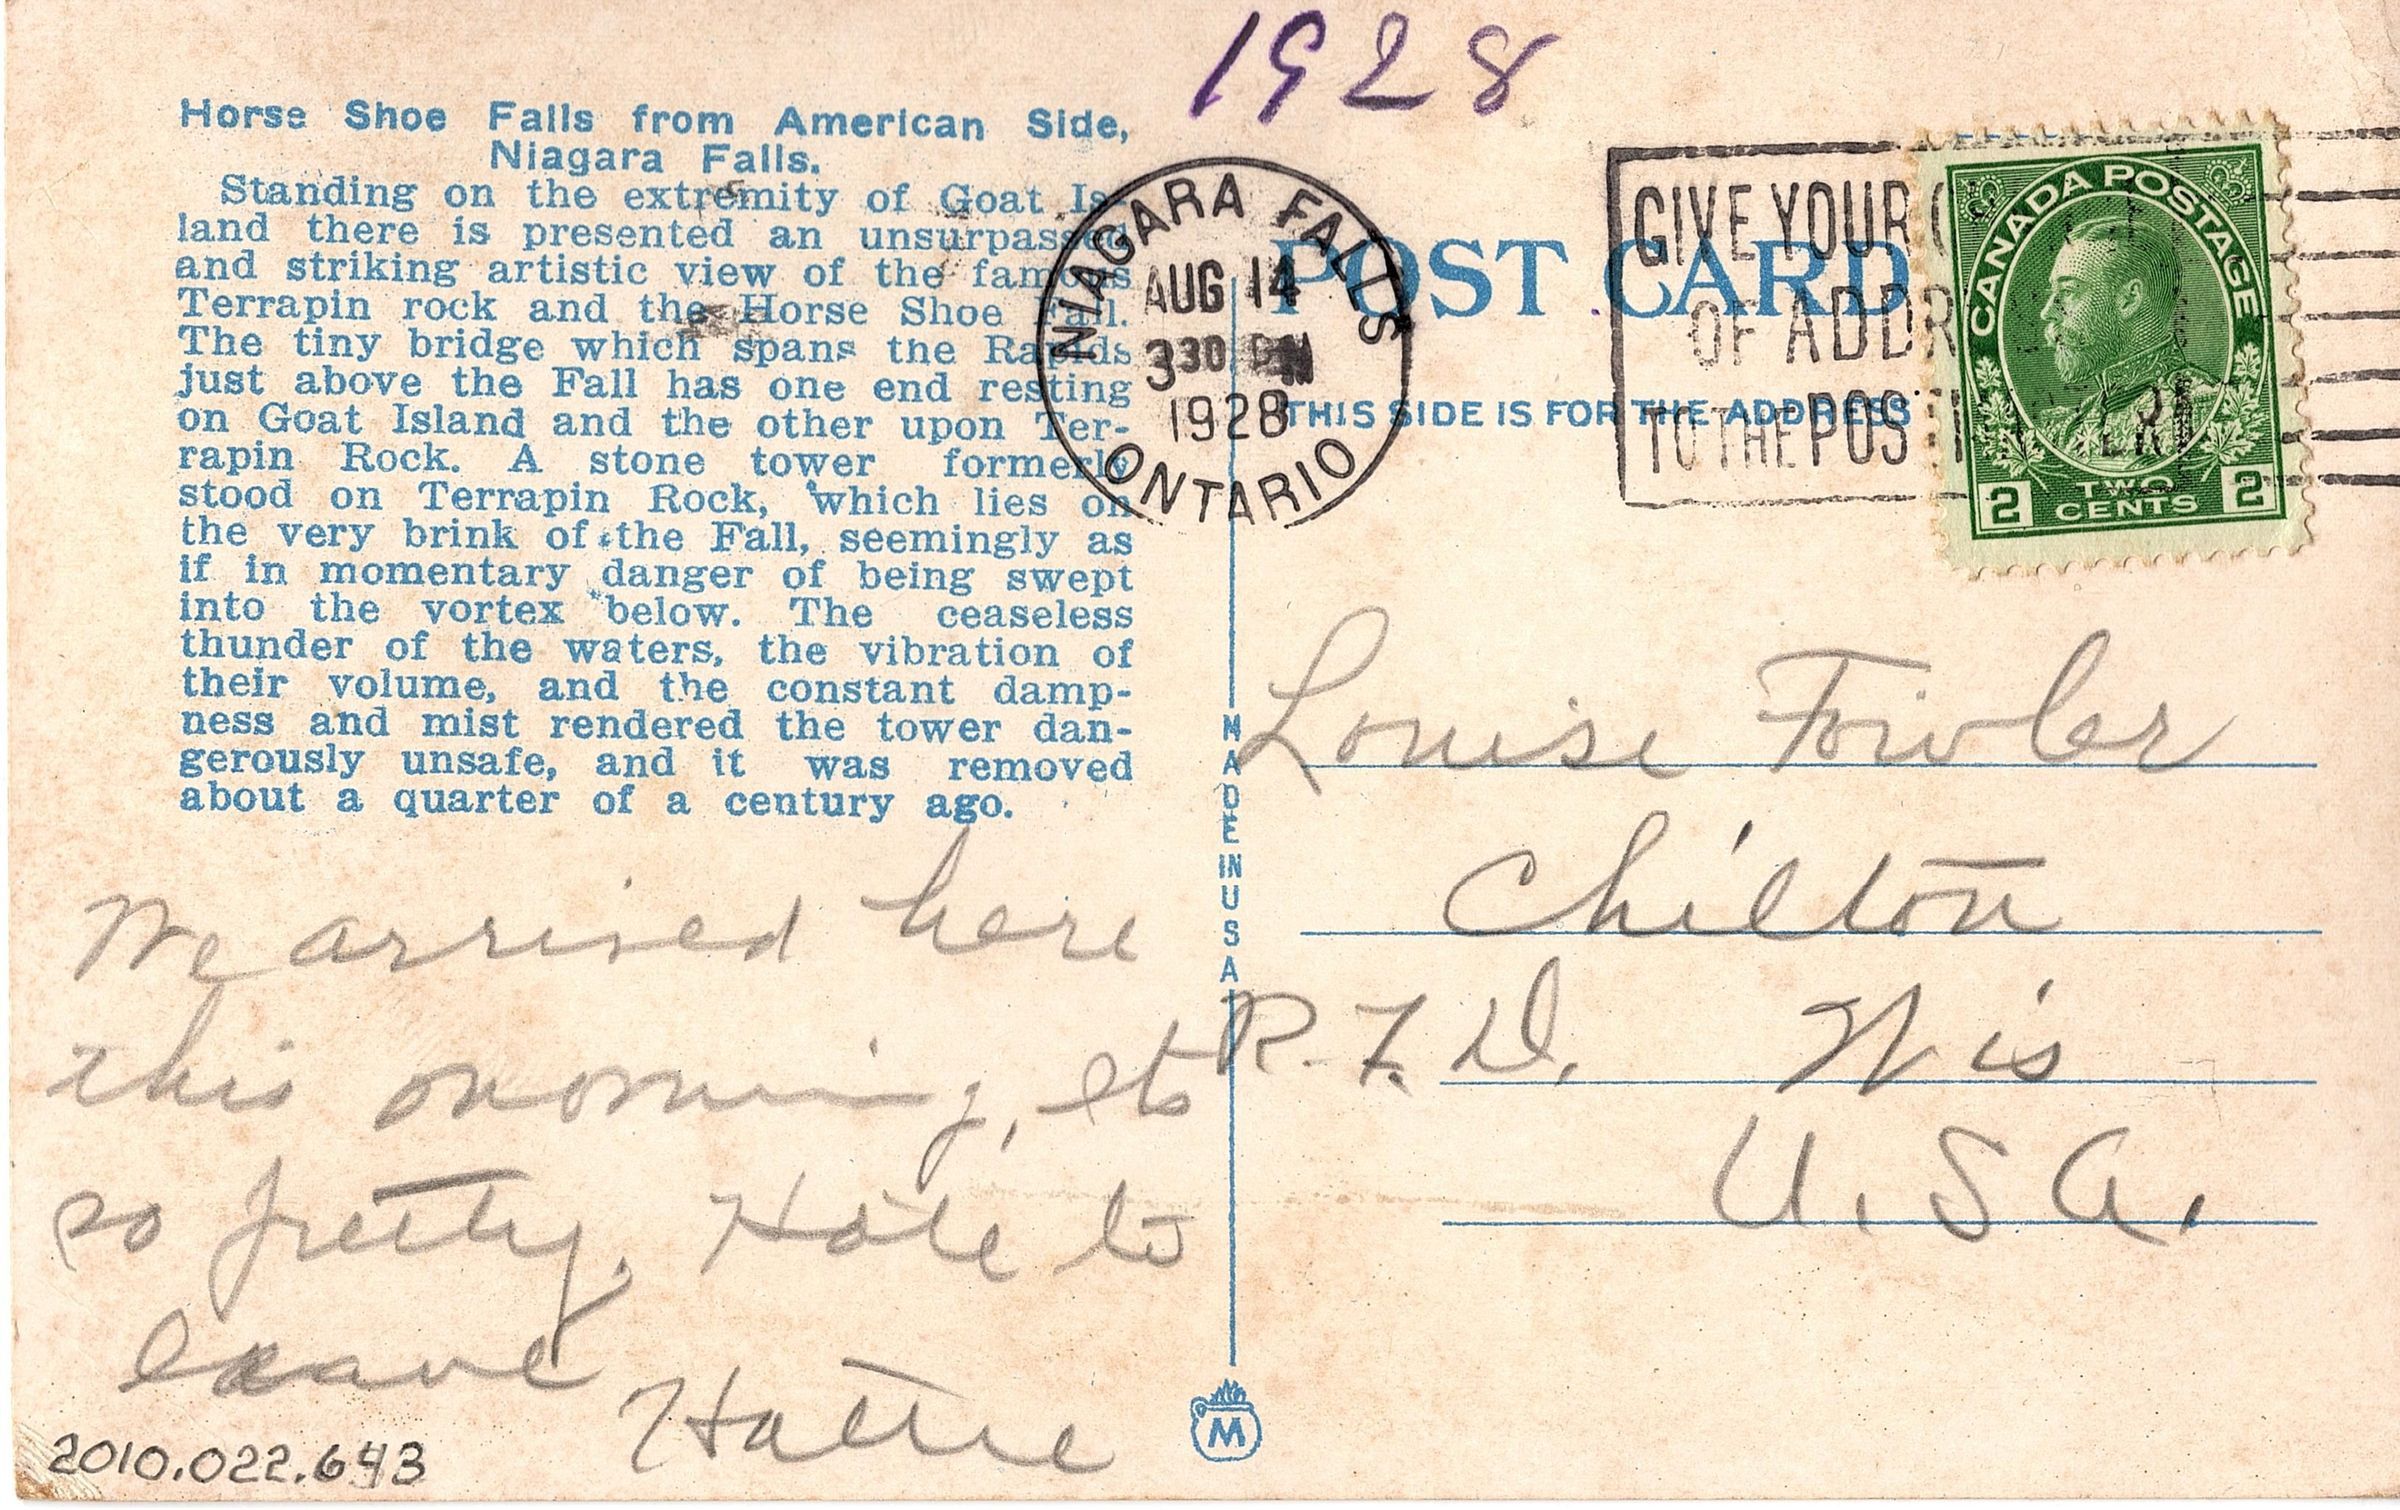 1928
Horse Shoe Falls from American Side,
Niagara Falls.
Standing on the extremity of Goat Is-
land there is presented an unsurpassed
and striking artistic view of the famous
Terrapin rock and the Horse Shoe Fall.
The tiny bridge which spans the Rapids
just above the Fall has one end resting
on Goat Island and the other upon Ter-
rapin Rock. A stone tower formerly
stood on Terrapin Rock, which lies on
the very brink of the Fall, seemingly as
if in momentary danger of being swept
into the vortex below. The ceaseless
thunder of the waters, the vibration of
their volume, and the constant damp-
ness and mist rendered the tower dan-
gerously unsafe, and it was removed
about a quarter of a century ago.
We arrived here
this morning, its
so pretty. Hate to
leave
Hattie
2010.022.643
NIAGARA FALLS
AUG 14
3 30 PM
1928
ONTARIO
POST CARD
THIS SIDE IS FOR THE ADDRESS
GIVE YOUR
OF ADDR
TO THE POS
CANADA POSTAGE
2 TWO CENTS 2
MADE IN USA
Louise Fowler
Chilton
R.F.D. Wis
U.S.A.
M